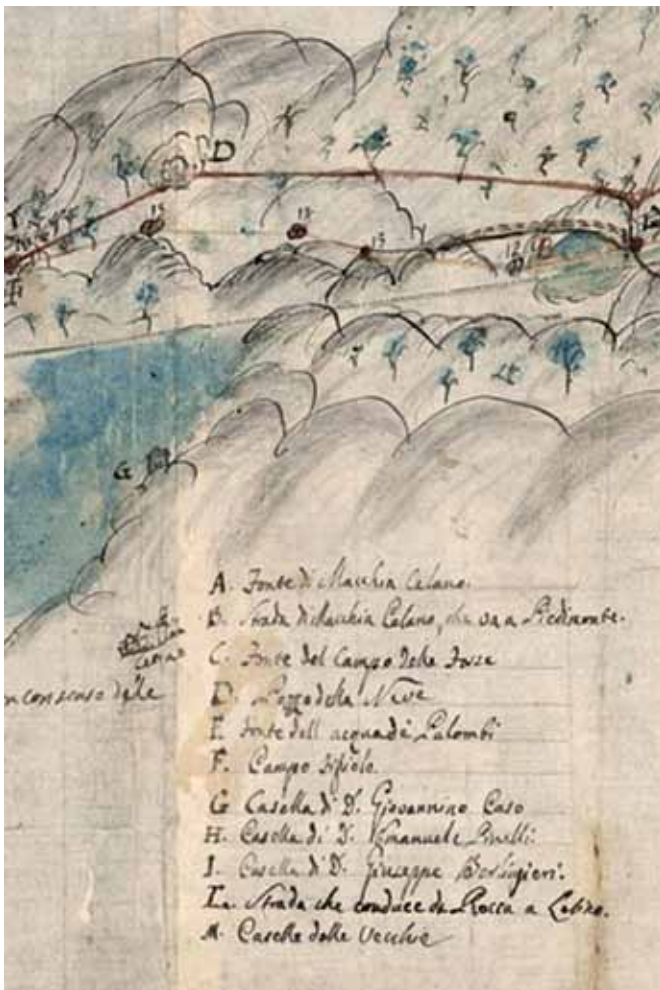 D
15
13
13
12
G
n consenso delle
A. Fonte di Macchia Celano.
B. Strada di Macchia Celano, che va a Piedimonte.
C. Fonte del Campo delle Fosse
D. Pozzo della Neve
E. Fonte dell acqua de Palombi
F. Campo
G Casella di D. Giovannino Caso
H. Casella di D. Emanuele Pinelli.
I. Casella di D. Giuseppe
L. Strada che conduce da Rocca a Letino.
M. Caselle delle Vecchie